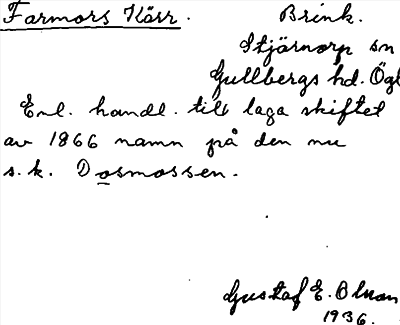 Farmors Kärr. Brink.
Stjärnorp sn
Gullbergs hd. Ögl
Enl. handl. till laga skiftet
av 1866 namn på den nu
s.k. Dosmossen.
Gustaf E. Olson
1936.